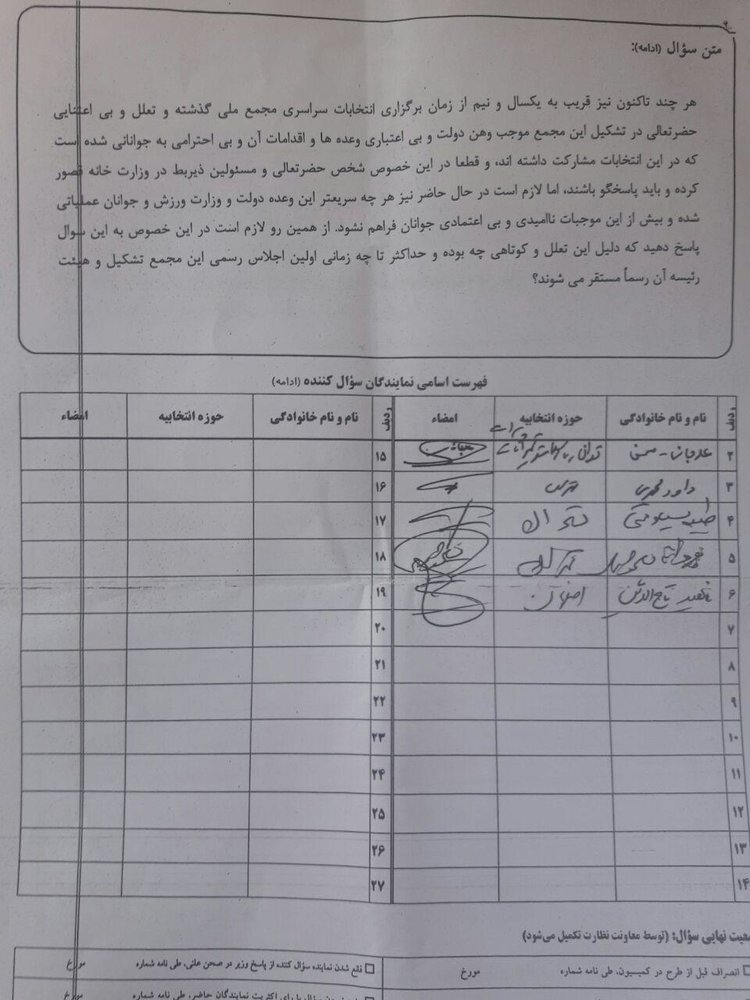 متن سؤال (ادامه):
هر چند تاکنون نیز قریب به یکسال و نیم از زمان برگزاری انتخابات سراسری مجمع ملی گذشته و تعلل و بی اعتنایی
حضرتعالی در تشکیل این مجمع موجب وهن دولت و بی اعتباری وعده ها و اقدامات آن و بی احترامی به جوانانی شده است
که در این انتخابات مشارکت داشته اند، و قطعا در این خصوص شخص حضرتعالی و مسئولین ذیربط در وزارت خانه قصور
کرده و باید پاسخگو باشند، اما لازم است در حال حاضر نیز هر چه سریعتر این وعده دولت و وزارت ورزش و جوانان عملیاتی
شده و بیش از این موجبات ناامیدی و بی اعتمادی جوانان فراهم نشود. از همین رو لازم است در این خصوص به این سوال
پاسخ دهید که دلیل این تعلل و کوتاهی چه بوده و حداکثر تا چه زمانی اولین اجلاس رسمی این مجمع تشکیل و هیئت
رئیسه آن رسماً مستقر می شوند؟
فهرست اسامی نمایندگان سؤال کننده (ادامه)
ردیف نام و نام خانوادگی حوزه انتخابیه امضاء ردیف نام و نام خانوادگی حوزه انتخابیه امضاء
۲ ۱۵
۳ داود محمدی ۱۶
۴ طیبه سیاوشی تهران ۱۷
۵ ۱۸
۶ ناهید تاج الدین اصفهان ۱۹
۷ ۲۰
۸ ۲۱
۹ ۲۲
۱۰ ۲۳
۱۱ ۲۴
۱۲ ۲۵
۱۳ ۲۶
۱۴ ۲۷
نهایی سؤال: (توسط معاونت نظارت تکمیل می‌شود)
انصراف قبل از طرح در کمیسیون، طی نامه شماره مورخ قانع شدن نماینده سؤال کننده از پاسخ وزیر در صحن علنی، طی نامه شماره مورخ